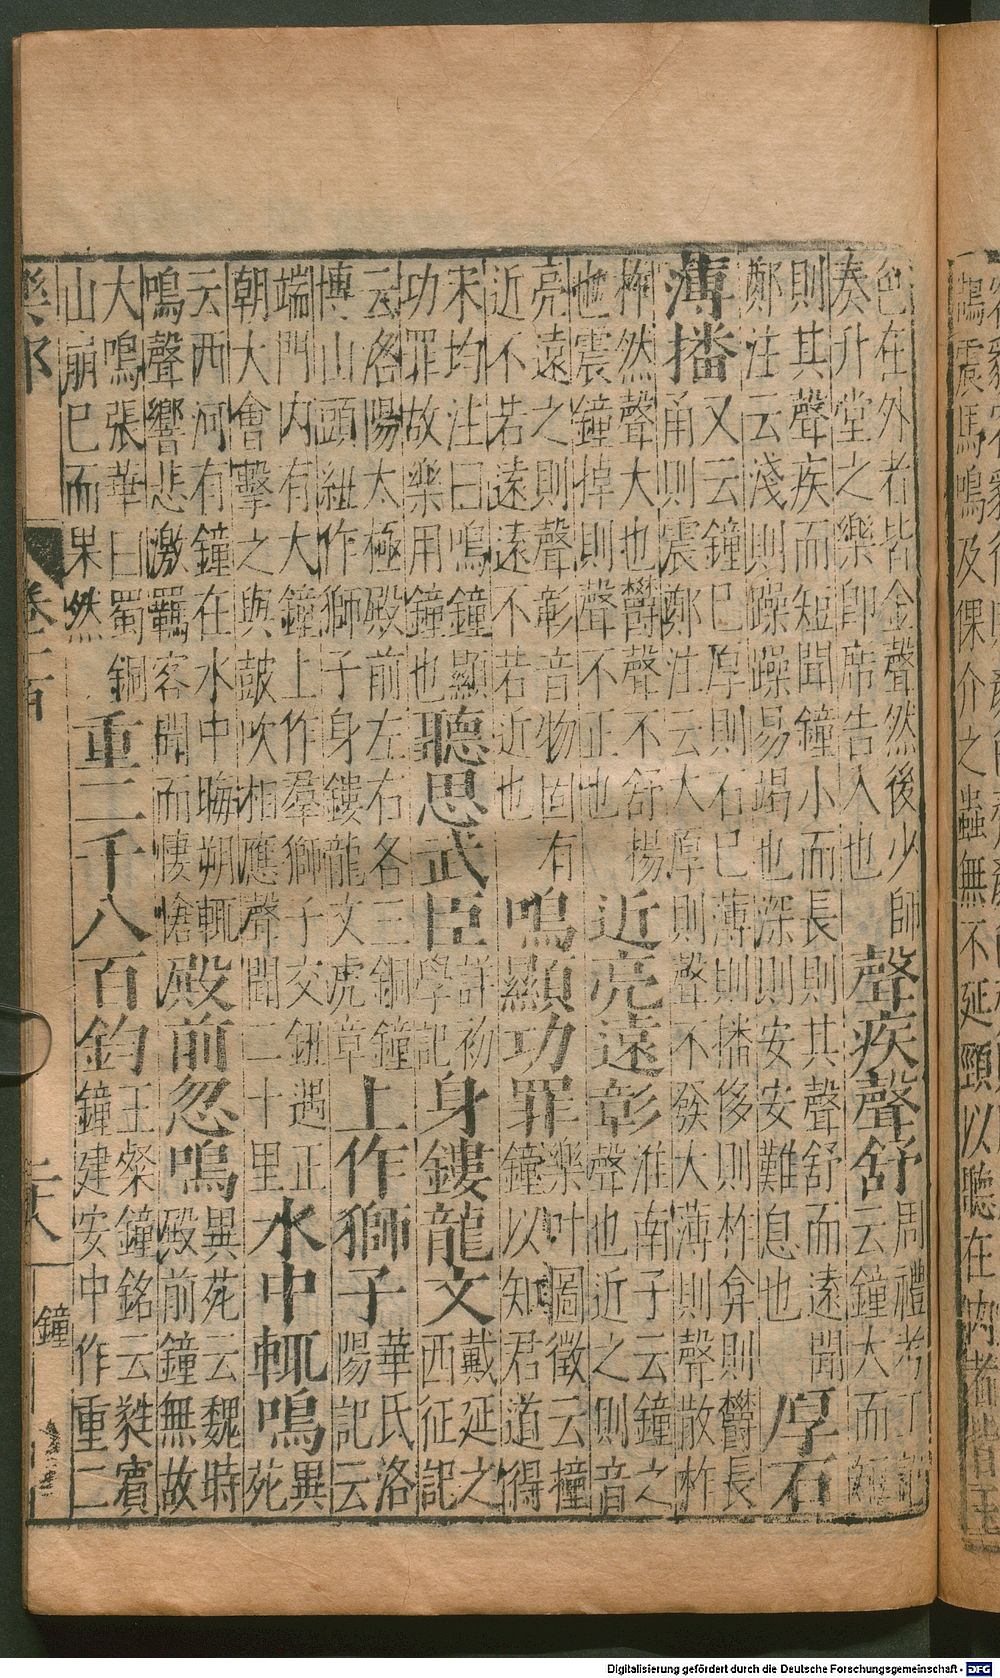 鶴震馬鳴及倮介之蟲無不延頸以聽在內者皆玉
色在外者皆金聲然後少師
奏升堂之樂卽席告入也
聲疾聲舒
周禮考工記
云鐘大而短
則其聲疾而短聞鐘小而長則其聲舒而遠聞
鄭注云淺則躁躁易竭也深則安安難息也
厚石
薄播
又云鐘巳厚則石巳薄則播侈則柞弇則鬱長
甬則震鄭注云大厚則聲不發大薄則聲散柞
柞然聲大也鬱聲不舒揚
也震鐘掉則聲不正也
近亮遠彰
淮南子云鐘之
聲也近之則音
亮遠之則聲彰音物固有
近不若遠遠不若近也
鳴顯功罪
樂叶圖徵云撞
鐘以知君道得
宋均注曰鳴鐘顯
功罪故樂用鐘也
聽思武臣
詳初
學記
身鏤龍文
戴延之
西征記
云洛陽太極殿前左右各三銅鐘
博山頭紐作獅子身鏤龍文虎章
上作獅子
華氏洛
陽記云
端門內有大鐘上作羣獅子交鈕遇正
朝大會擊之與鼓吹相應聲聞二十里
水中輒鳴
異
苑
云西河有鐘在水中晦朔輒
鳴聲響悲激羈客聞而悽愴
殿前忽鳴
異苑云魏時
殿前鐘無故
大鳴張華曰蜀銅
山崩巳而果然
重二千八百鈞
王粲鐘銘云蕤賓
鐘建安中作重二
樂部
卷一百
二十八
鐘
Digitalisierung gefördert durch die Deutsche Forschungsgemeinschaft - DFG